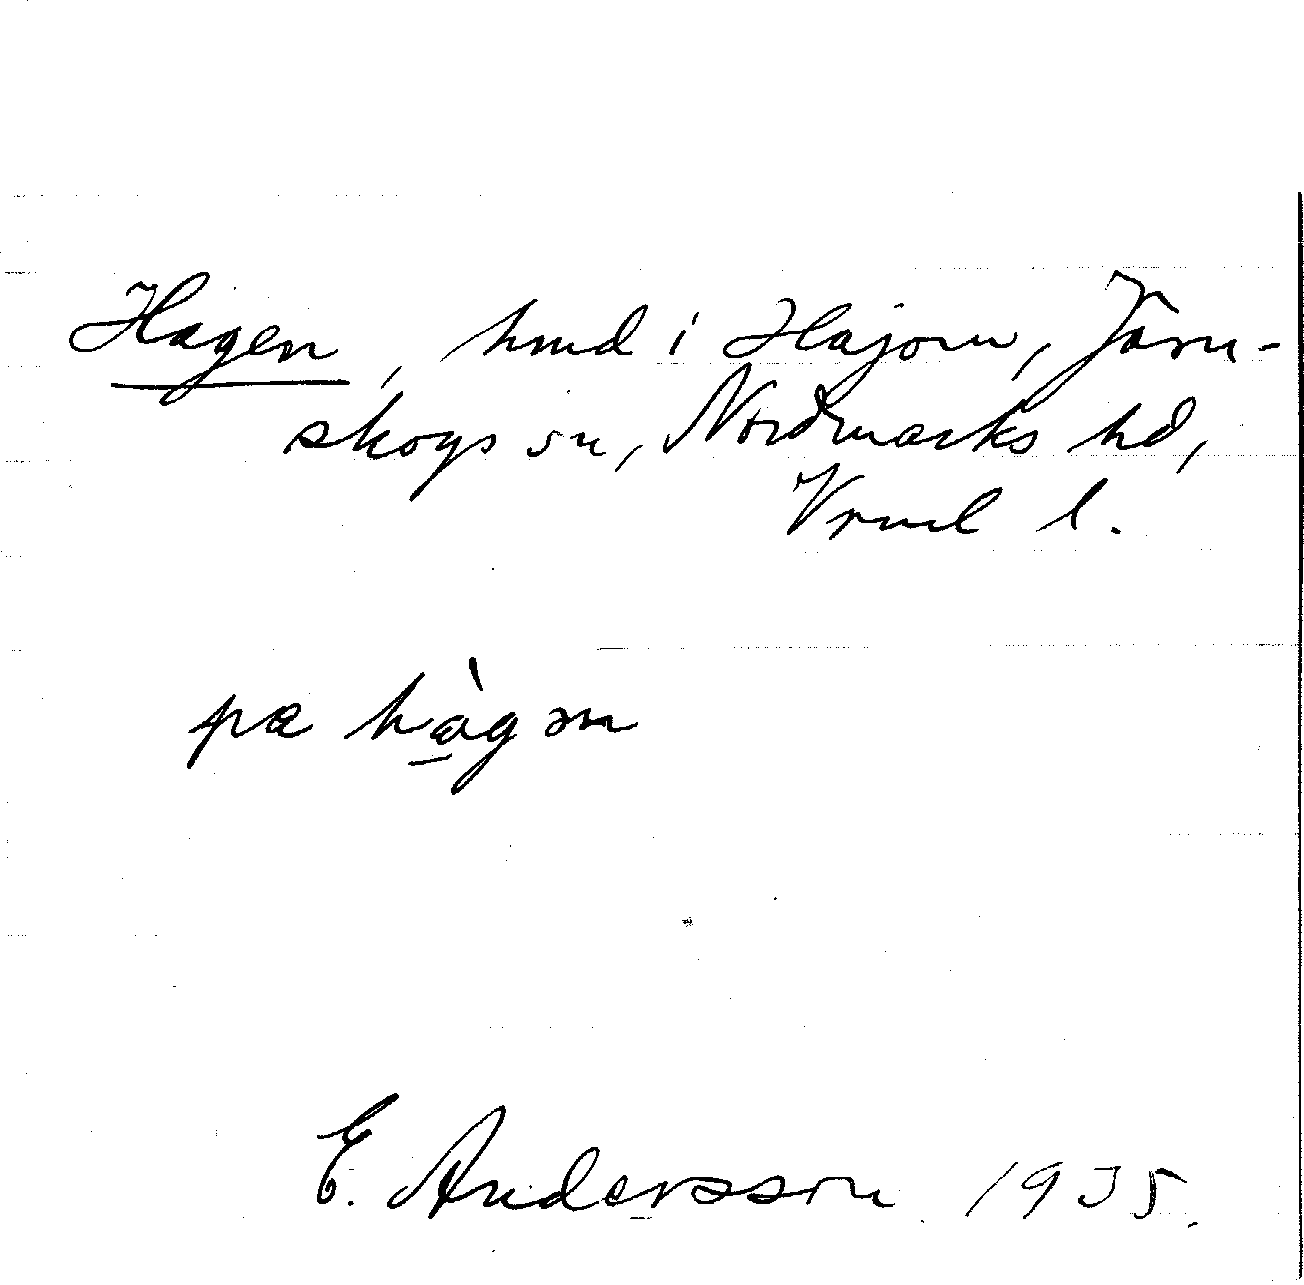 Hagen, hmd i Häjom, Järn-
skogs sn, Nordmarks hd,
Vrml l.
pa hàgen
E. Andersson 1935.